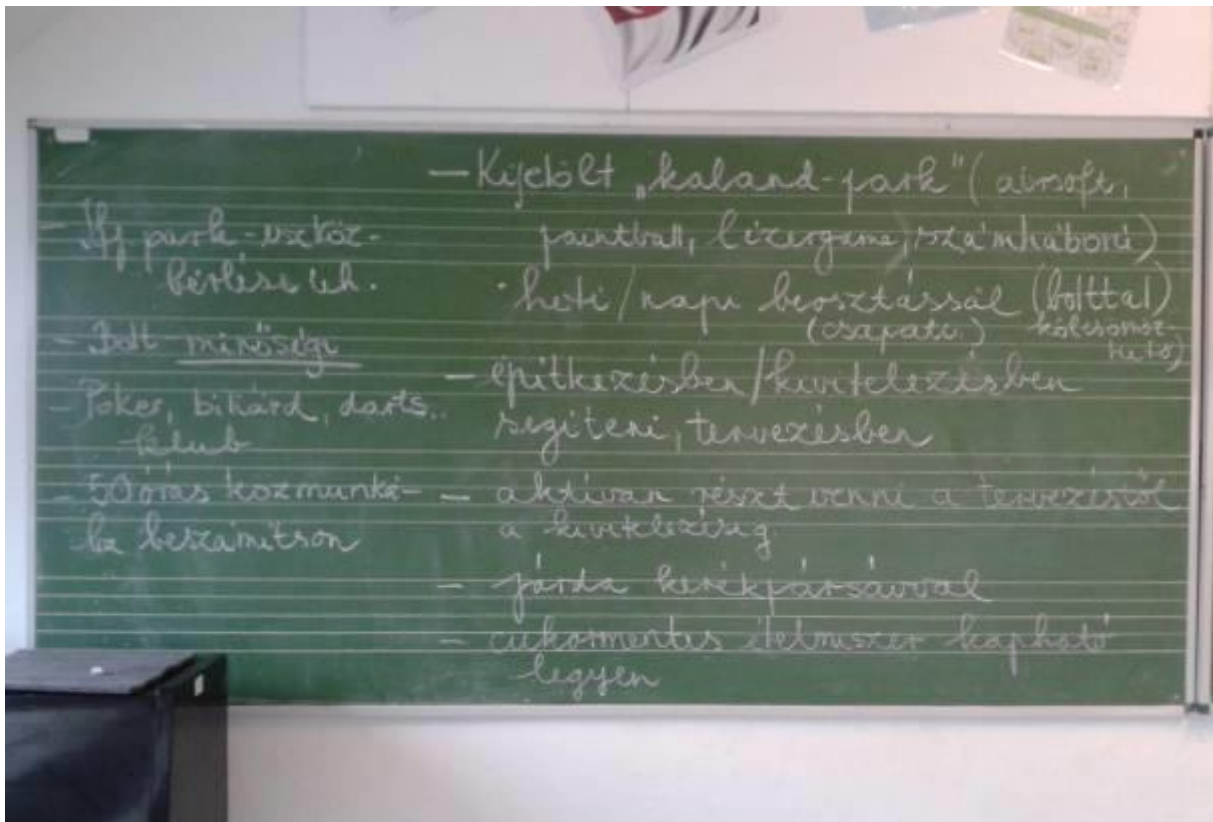 - Ifj park - eszköz-
bérlése
- Bolt minőségi
- Póker, biliárd, darts..
klub
- 50 órás közmunká-
ba beszámítson
- Kijelölt „kaland-park" (airsoft,
paintball, lézergame, számháború)
· heti/napi beosztással (bolttal)
(csapaté.) kölcsönöz-
hető)
- építkezésben/kivitelezésben
segíteni, tervezésben
- aktívan részt venni a tervezéstől
a kivitelezésig
- járda kerékpársávval
- cukormentes élelmiszer kapható
legyen